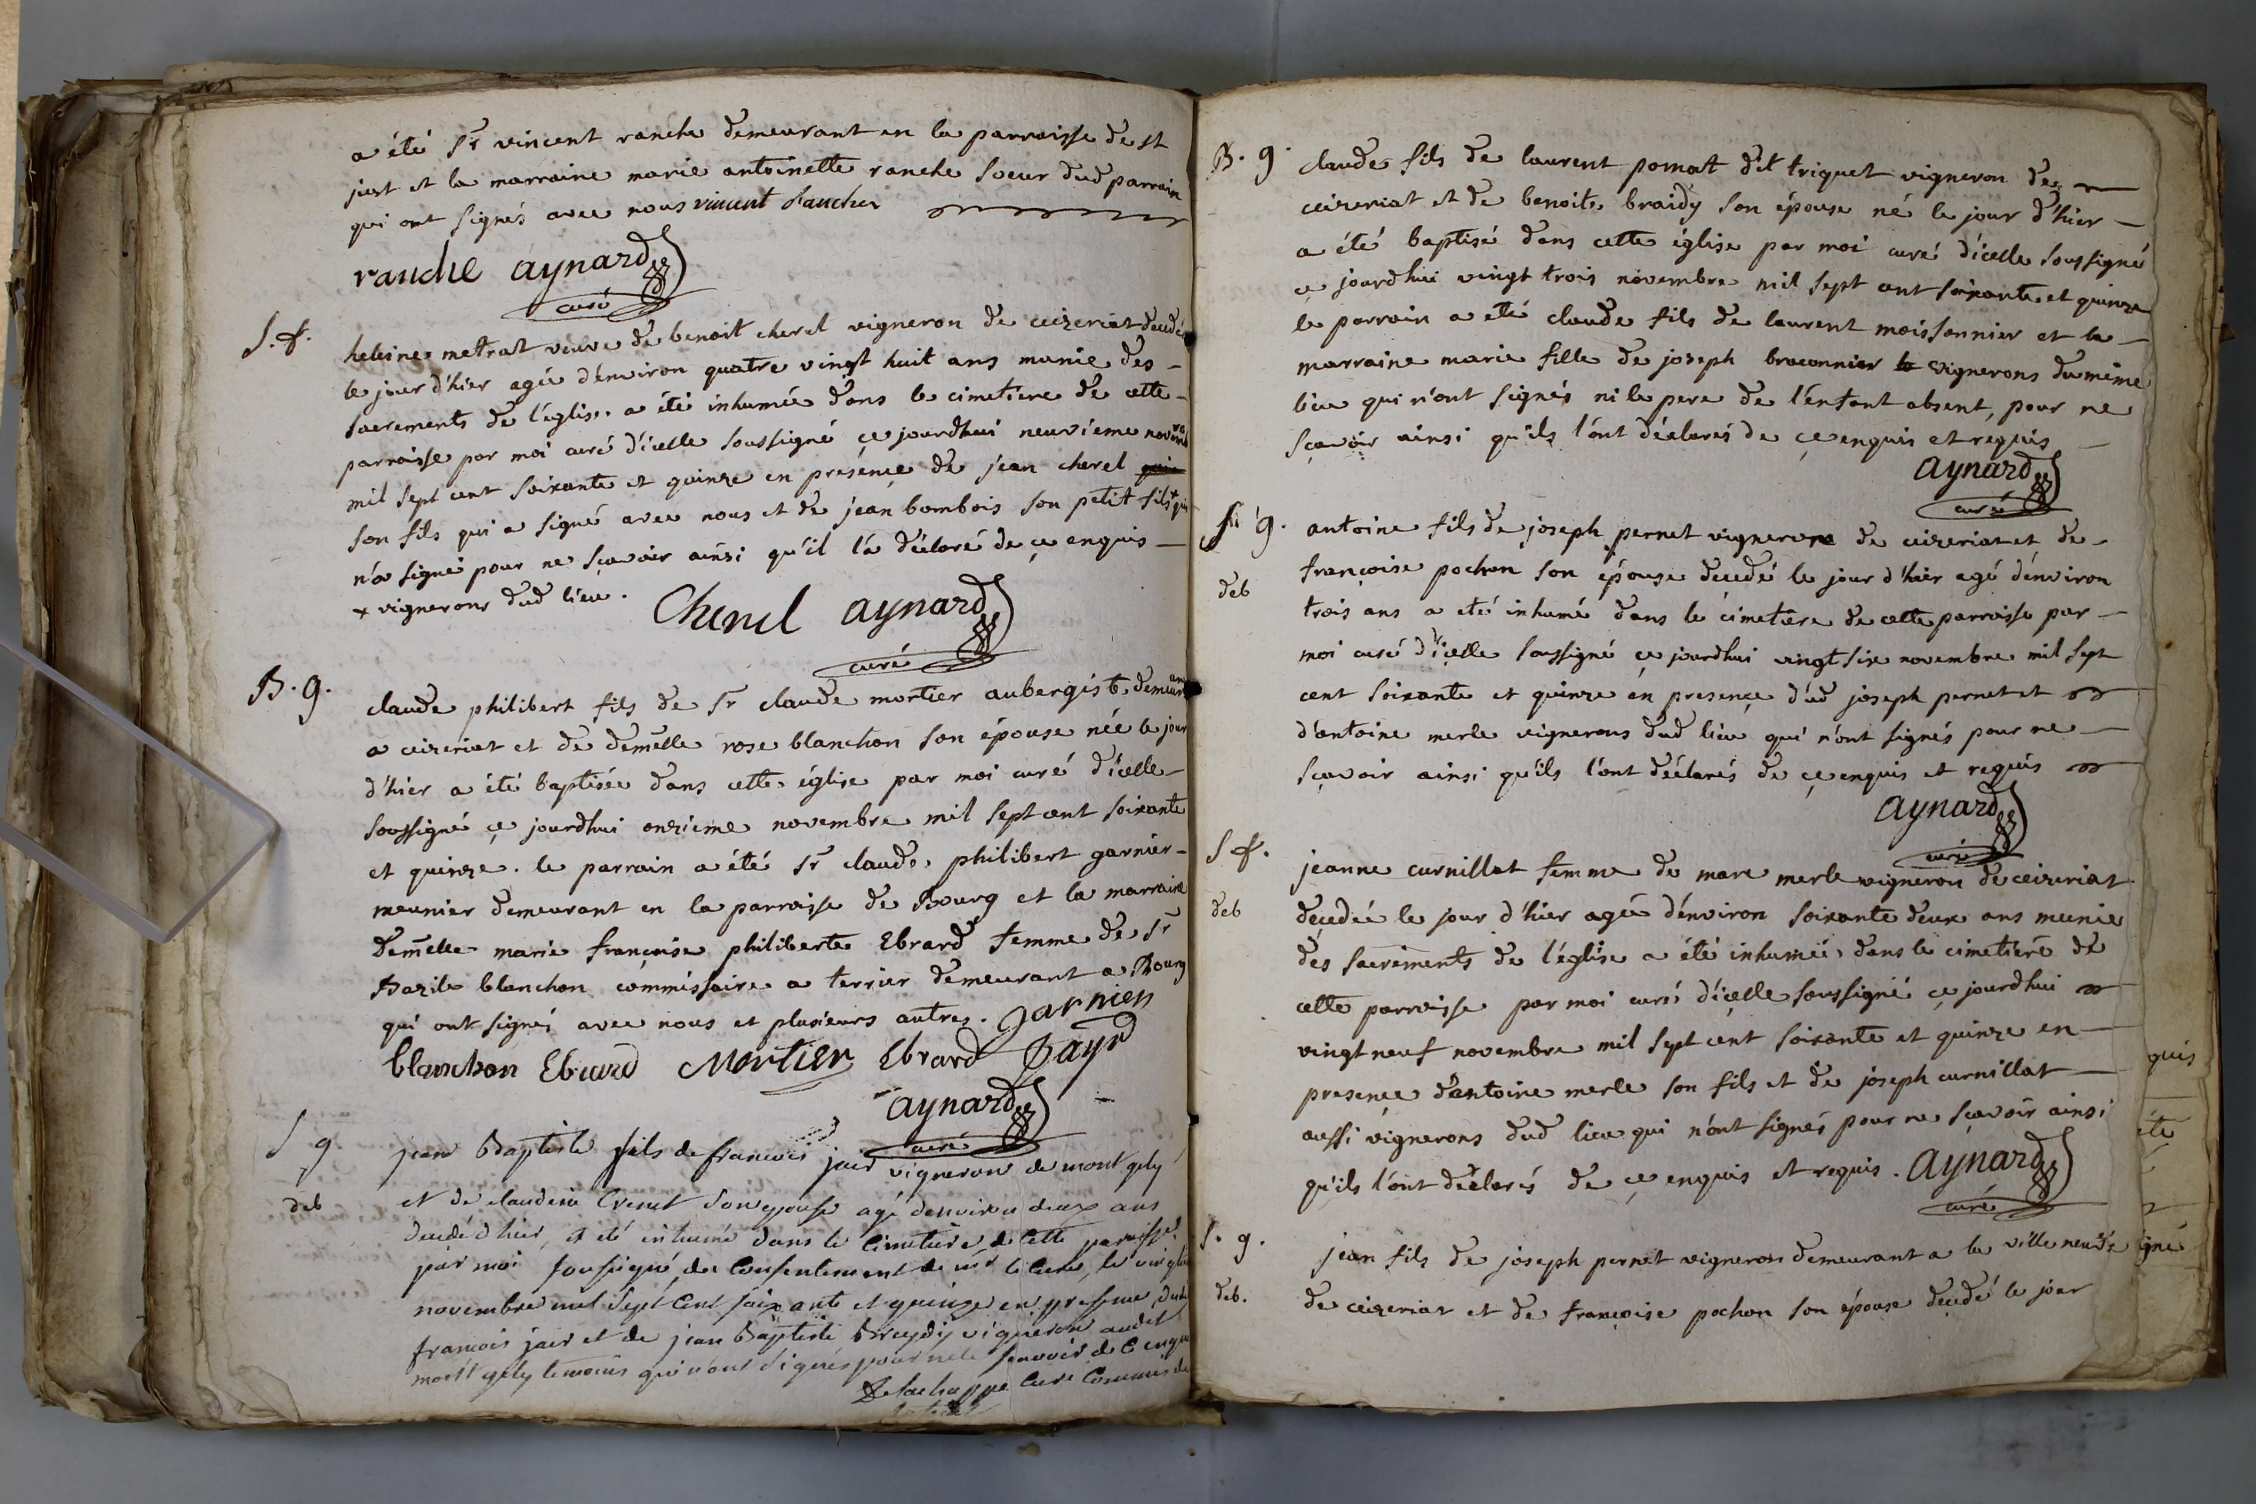 a été Sr vincent ranche demeurant en la parroisse de st
just et la marraine marie antoinette ranche soeur dud parrain
qui ont signés avec nous vincent Rancher
ranche aynard
curé
S. f.
heleine metrat veuve de benoit cherel vigneron de ceizeriat decedée
le jour d'hier agée d'environ quatre vingt huit ans munie des
sacrements de l'église. a été inhumée dans le cimetiere de cette
parroisse par moi curé d'icelle soussigné ce jourdhui neuvieme novembre
mil sept cent soixante et quinze en presence de jean cherel
son fils qui a signé avec nous et de jean bombois son petit fils + qui
n'a signé pour ne sçavoir ainsi qu'il l'a déclaré de ce enquis
+ vignerons dud lieu.
Cherel aynard
curé
B. g.
claude philibert fils de Sr claude mortier aubergiste demeurant
a ceizeriat et de demelle rose blanchon son épouse née le jour
d'hier a été baptisée dans cette église par moi curé d'icelle
soussigné ce jourdhui onzieme novembre mil sept cent soixante
et quinze. le parrain a été Sr claude philibert garnier
meunier demeurant en la parroisse de Bourg et la marraine
demelle marie françoise philiberte Ebrard femme de Sr
Bazile blanchon commissaire a terrier demeurant a Bourg
qui ont signés avec nous et plusieurs autres. garnier
blanchon Ebrard Mortier Ebrard
aynard
curé
S g
deb
jean Baptiste fils de francois jair vigneron de mont gely
et de claudine Crenet son epouse agé denviron deux ans
decedé d'hier, a été inhumé dans le Cimetiere de Cette paroisse
par moi soussigné, du Consentement de mr le Curé, le vingt
novembre mil sept Cent soixante et quinze en presence dudit
francois jair et de jean Baptiste Breydy vigneron audit
mont gely temoins qui n'ont signés pour ne le sçavoir de Ce enquis
Delachappe Curé Commis de
B. g.
claude fils de laurent pomat dit triquet vigneron de
ceizeriat et de benoite braidy son épouse né le jour d'hier
a été baptisé dans cette église par moi curé d'icelle soussigné
ce jourdhui vingt trois novembre mil sept cent soixante et quinze
le parrain a été claude fils de laurent moissonnier et la
marraine marie fille de joseph braconnier vignerons du même
lieu qui n'ont signés ni le pere de l'enfant absent, pour ne
sçavoir ainsi qu'ils l'ont déclarés de ce enquis et requis
aynard
curé
S. g.
deb
antoine fils de joseph pernet vigneron de ceizeriat et de
françoise pochon son épouse decedé le jour d'hier agé d'environ
trois ans a été inhumé dans le cimetiere de cette parroisse par
moi curé d'icelle soussigné ce jourdhui vingt six novembre mil sept
cent soixante et quinze en presence dud joseph pernet et
d'antoine merle vignerons dud lieu qui n'ont signés pour ne
sçavoir ainsi qu'ils l'ont déclarés de ce enquis et requis
aynard
curé
S f.
deb
jeanne curnillat femme de marc merle vigneron de ceizeriat
decedée le jour d'hier agée d'environ soixante deux ans munie
des sacrements de l'église a été inhumée dans le cimetiere de
cette parroisse par moi curé d'icelle soussigné ce jourdhui
vingt neuf novembre mil sept cent soixante et quinze en
presence d'antoine merle son fils et de joseph curnillat
aussi vignerons dud lieu qui n'ont signés pour ne sçavoir ainsi
qu'ils l'ont declarés de ce enquis et requis. aynard
curé
S. g.
deb.
jean fils de joseph pernet vigneron demeurant a la ville neuve
de ceizeriat et de françoise pochon son épouse decedé le jour
quis
été
igné